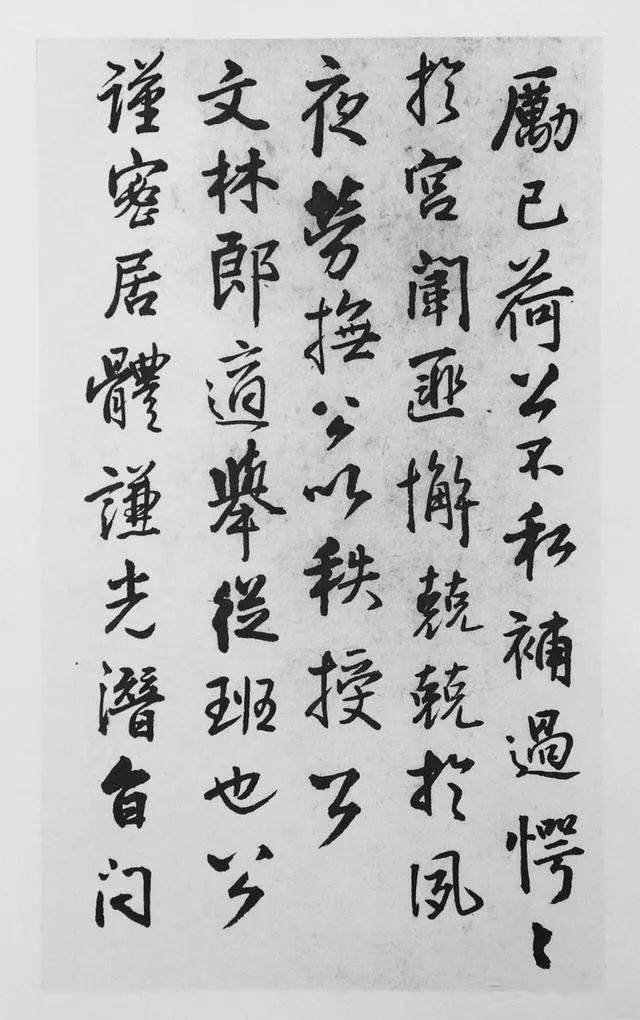 厲已荷公不私補過愕〻
於宮闈匪懈兢兢於夙
夜勞撫公以秩授公
文林郎適舉從班也公
謹密居體謙光潛自問